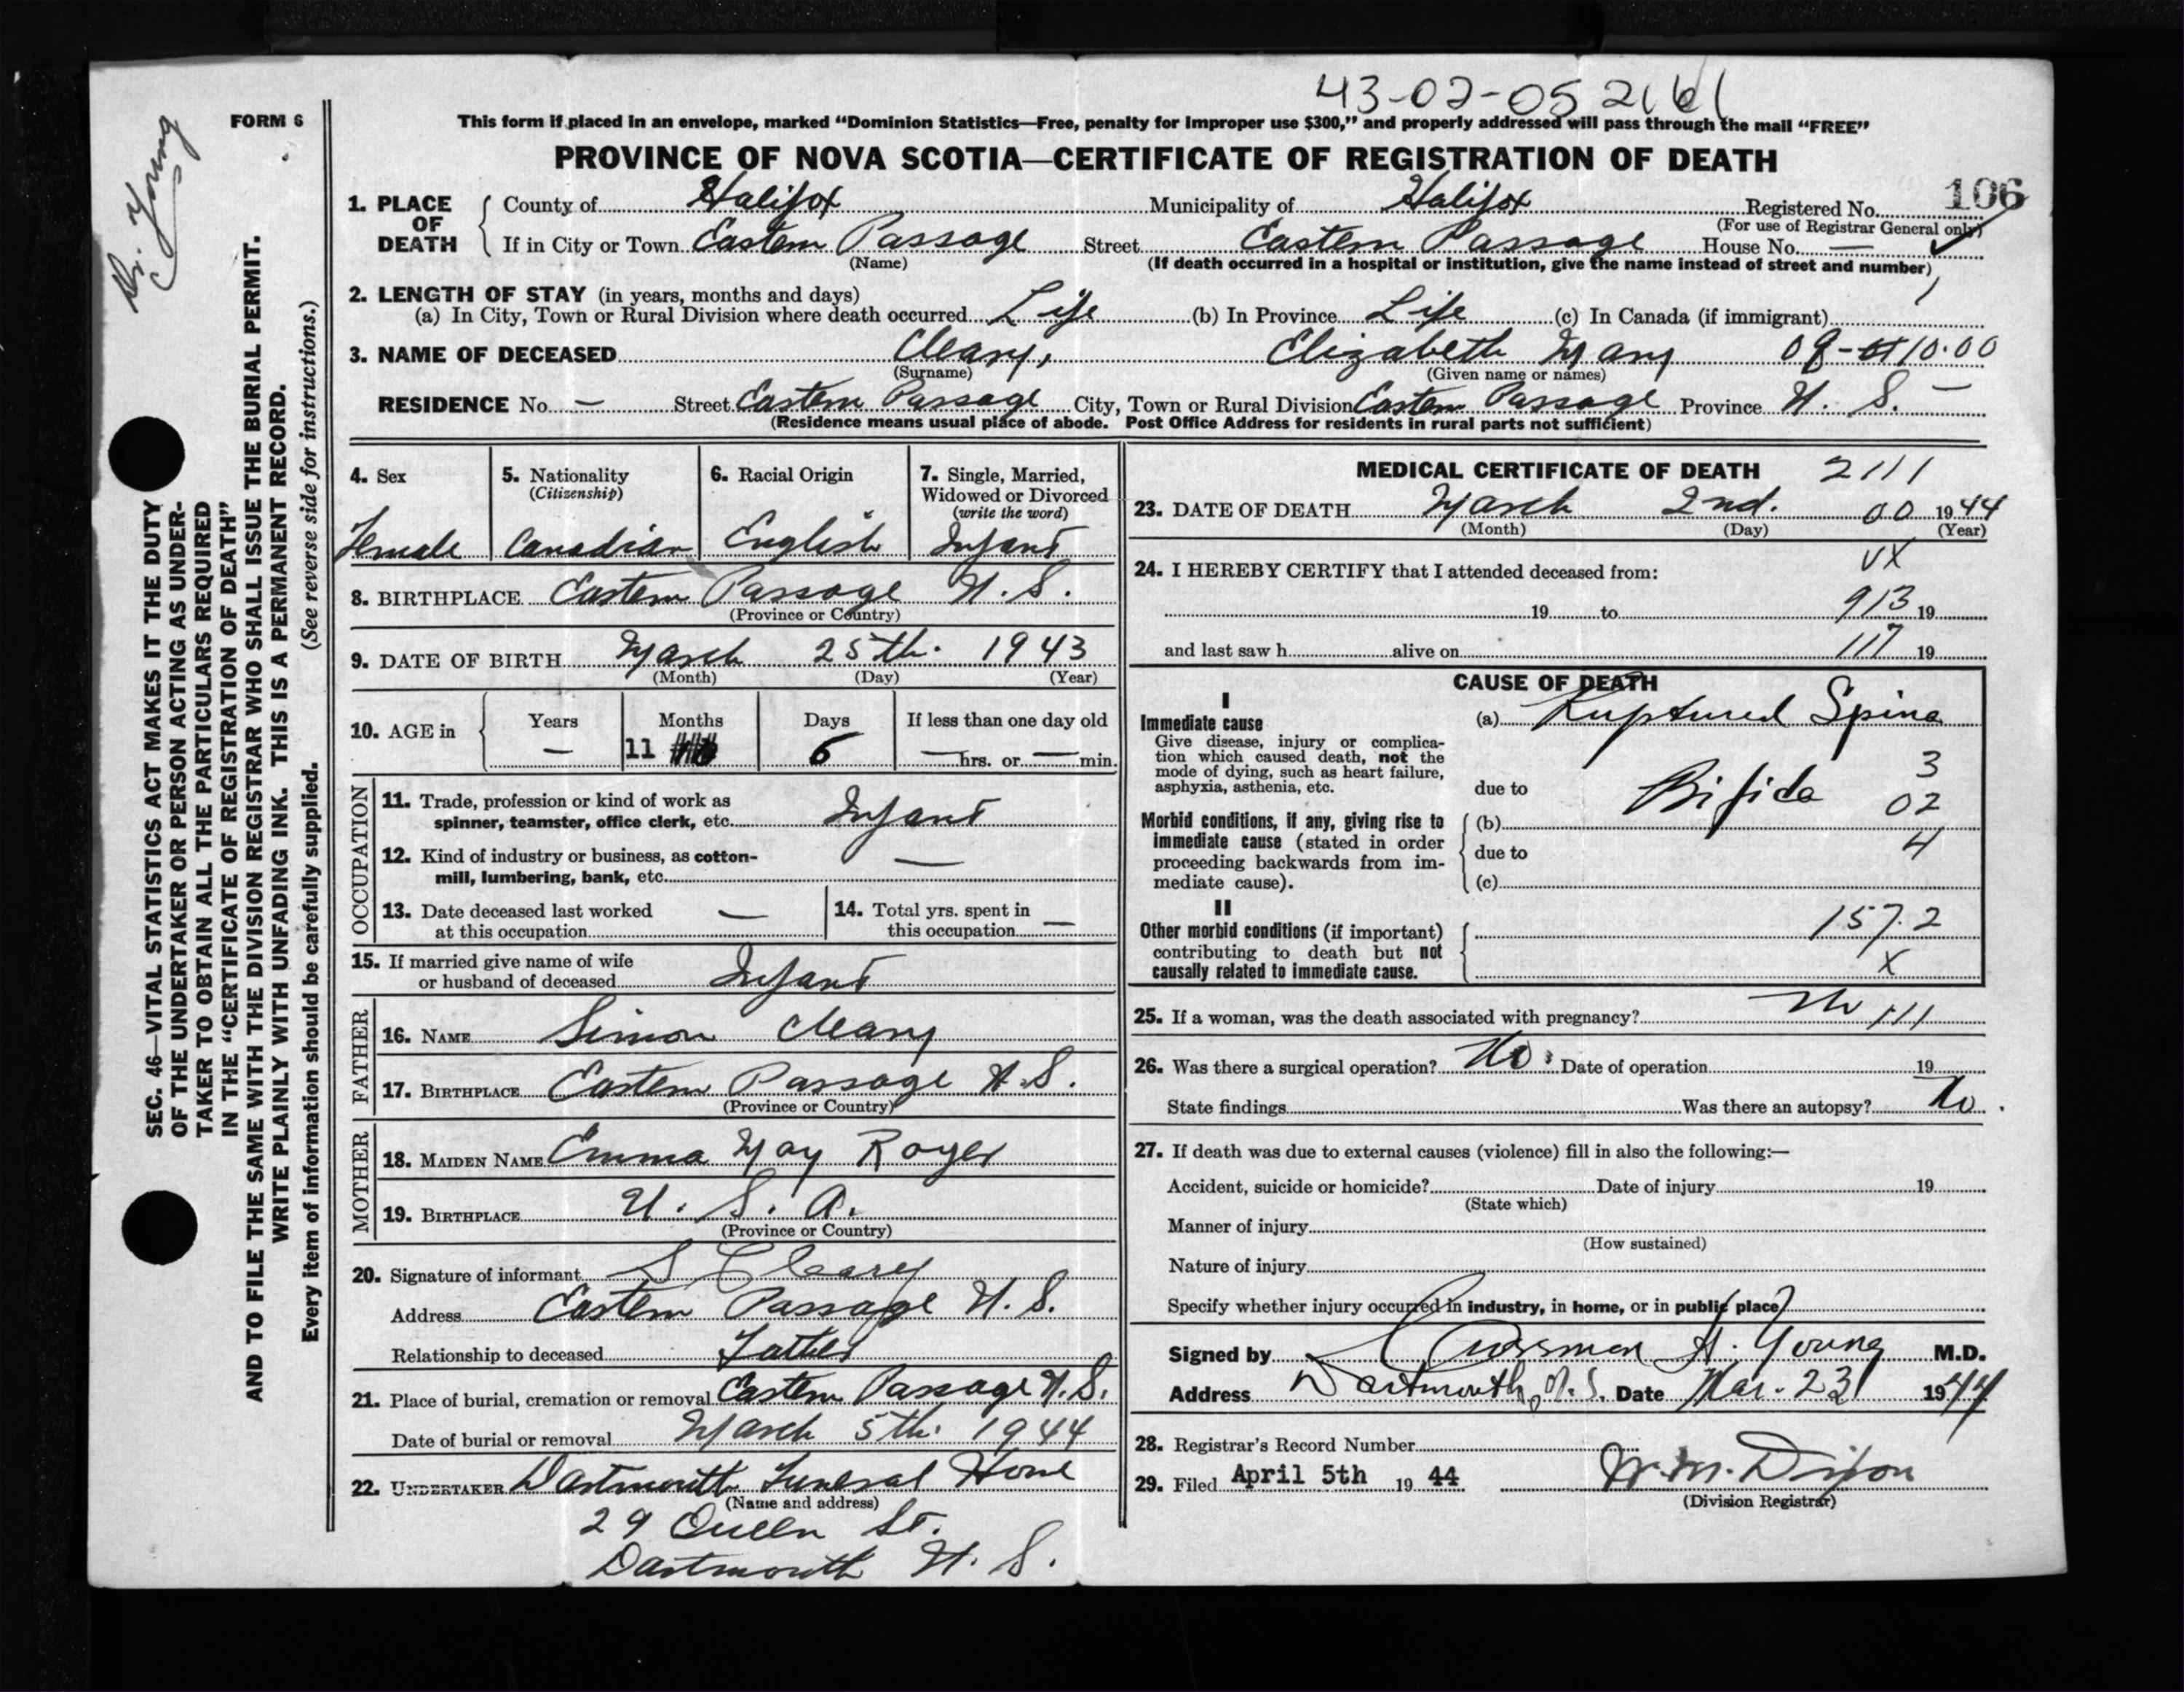 43-02-05 2161
FORM 6
Dr. Young
This form if placed in an envelope, marked "Dominion Statistics—Free, penalty for improper use $300," and properly addressed will pass through the mail "FREE"
PROVINCE OF NOVA SCOTIA—CERTIFICATE OF REGISTRATION OF DEATH
SEC. 46—VITAL STATISTICS ACT MAKES IT THE DUTY
OF THE UNDERTAKER OR PERSON ACTING AS UNDER-
TAKER TO OBTAIN ALL THE PARTICULARS REQUIRED
IN THE "CERTIFICATE OF REGISTRATION OF DEATH"
AND TO FILE THE SAME WITH THE DIVISION REGISTRAR WHO SHALL ISSUE THE BURIAL PERMIT.
WRITE PLAINLY WITH UNFADING INK. THIS IS A PERMANENT RECORD.
Every item of information should be carefully supplied. (See reverse side for instructions.)
1. PLACE OF DEATH County of Halifax Municipality of Halifax Registered No. 106
(For use of Registrar General only)
If in City or Town Eastern Passage Street Eastern Passage House No. —
(Name) (If death occurred in a hospital or institution, give the name instead of street and number)
2. LENGTH OF STAY (in years, months and days)
(a) In City, Town or Rural Division where death occurred Life (b) In Province Life (c) In Canada (if immigrant)
3. NAME OF DECEASED Cleary, Elizabeth Mary
(Surname) (Given name or names)
RESIDENCE No. — Street Eastern Passage City, Town or Rural Division Eastern Passage Province N. S. —
(Residence means usual place of abode. Post Office Address for residents in rural parts not sufficient)
4. Sex Female
5. Nationality (Citizenship) Canadian
6. Racial Origin English
7. Single, Married, Widowed or Divorced (write the word) Infant
8. BIRTHPLACE Eastern Passage N. S.
(Province or Country)
9. DATE OF BIRTH March 25th. 1943
(Month) (Day) (Year)
10. AGE in Years — Months 11 Days 6 If less than one day old — hrs. or — min.
OCCUPATION
11. Trade, profession or kind of work as
spinner, teamster, office clerk, etc. Infant
12. Kind of industry or business, as cotton-
mill, lumbering, bank, etc. —
13. Date deceased last worked
at this occupation —
14. Total yrs. spent in
this occupation —
15. If married give name of wife
or husband of deceased Infant
FATHER
16. NAME Simon Cleary
17. BIRTHPLACE Eastern Passage N.S.
(Province or Country)
MOTHER
18. MAIDEN NAME Emma May
19. BIRTHPLACE U. S. A.
(Province or Country)
20. Signature of informant S Cleary
Address Eastern Passage N. S.
Relationship to deceased Father
21. Place of burial, cremation or removal Eastern Passage N.S.
Date of burial or removal March 5th. 1944
22. UNDERTAKER Dartmouth Funeral Home
(Name and address)
29 Queen St.
Dartmouth N. S.
MEDICAL CERTIFICATE OF DEATH 2111
23. DATE OF DEATH March 2nd. 00 1944
(Month) (Day) (Year)
VX
24. I HEREBY CERTIFY that I attended deceased from:
19 to 913 19
and last saw h alive on 117 19
CAUSE OF DEATH
I
Immediate cause
Give disease, injury or complica-
tion which caused death, not the
mode of dying, such as heart failure,
asphyxia, asthenia, etc.
(a) Ruptured Spina
due to Bifida 3
02
Morbid conditions, if any, giving rise to
immediate cause (stated in order
proceeding backwards from im-
mediate cause).
(b)
due to 4
(c)
II
Other morbid conditions (if important)
contributing to death but not
causally related to immediate cause.
157.2
X
25. If a woman, was the death associated with pregnancy? No 111
26. Was there a surgical operation? No. Date of operation 19
State findings Was there an autopsy? No.
27. If death was due to external causes (violence) fill in also the following:—
Accident, suicide or homicide? Date of injury 19
(State which)
Manner of injury
(How sustained)
Nature of injury
Specify whether injury occurred in industry, in home, or in public place?
Signed by H. Young M.D.
Address Dartmouth, N.S. Date Mar. 23 1944
28. Registrar's Record Number
29. Filed April 5th 1944
(Division Registrar)